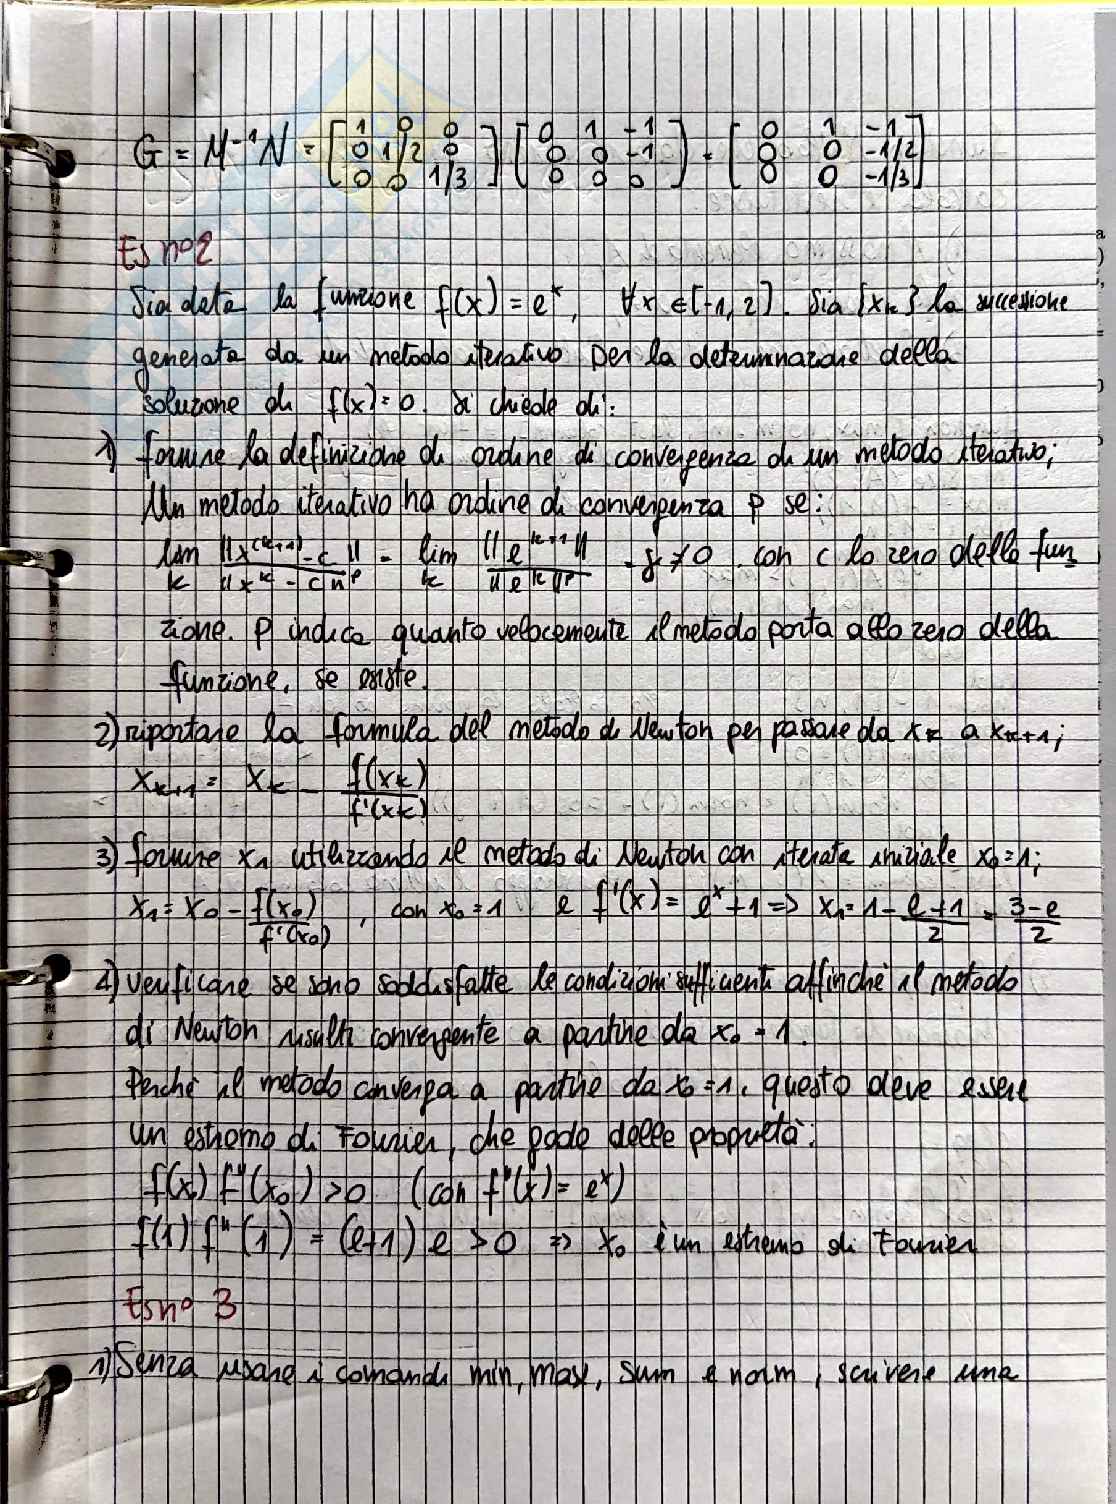 G = M⁻¹N = [1 0 0; 0 1/2 0; 0 0 1/3] [0 1 -1; 0 0 -1; 0 0 0] = [0 1 -1; 0 0 -1/2; 0 0 -1/3]
Es n°2
Sia data la funzione f(x) = eˣ, ∀x ∈ [-1, 2]. Sia {xₖ} la successione
generata da un metodo iterativo per la determinazione della
soluzione di f(x) = 0. Si chiede di:
1) fornire la definizione di ordine di convergenza di un metodo iterativo;
Un metodo iterativo ha ordine di convergenza p se:
lim k ||x^(k+1) - c|| / ||x^k - c||^p = lim k ||e^k+1|| / ||e^k||^p = γ ≠ 0 con c lo zero della fun
zione. p indica quanto velocemente il metodo porta allo zero della
funzione, se esiste.
2) riportare la formula del metodo di Newton per passare da xₖ a xₖ₊₁;
xₖ₊₁ = xₖ - f(xₖ)/f'(xₖ)
3) fornire x₁ utilizzando il metodo di Newton con iterata iniziale x₀ = 1;
x₁ = x₀ - f(x₀)/f'(x₀), con x₀ = 1 e f'(x) = eˣ + 1 => x₁ = 1 - e+1/2 = 3-e/2
4) verificare se sono soddisfatte le condizioni sufficienti affinchè il metodo
di Newton risulti convergente a partire da x₀ = 1.
Perchè il metodo converga a partire da x₀ = 1, questo deve essere
un estremo di Fourier, che gode delle proprietà:
f(x₀) f"(x₀) > 0 (con f"(x) = eˣ)
f(1) f"(1) = (e+1) e > 0 => x₀ è un estremo di Fourier
Es n° 3
1) Senza usare i comandi min, max, sum e norm, scrivere una